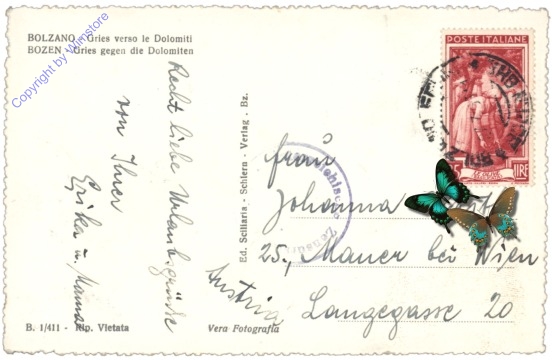 BOLZANO - Gries verso le Dolomiti
BOZEN - Gries gegen die Dolomiten
Copyright by Wimstore
Recht liebe Urlaubsgrüsse
von Ihrer
Erika u. Mama
B. 1/411 - Rip. Vietata
Vera Fotografia
Ed. Sciliaria - Schlern - Verlag - Bz.
POSTE ITALIANE
LIRE
Frau
Johanna
25., Mauer bei Wien
Langegasse 20
Austria